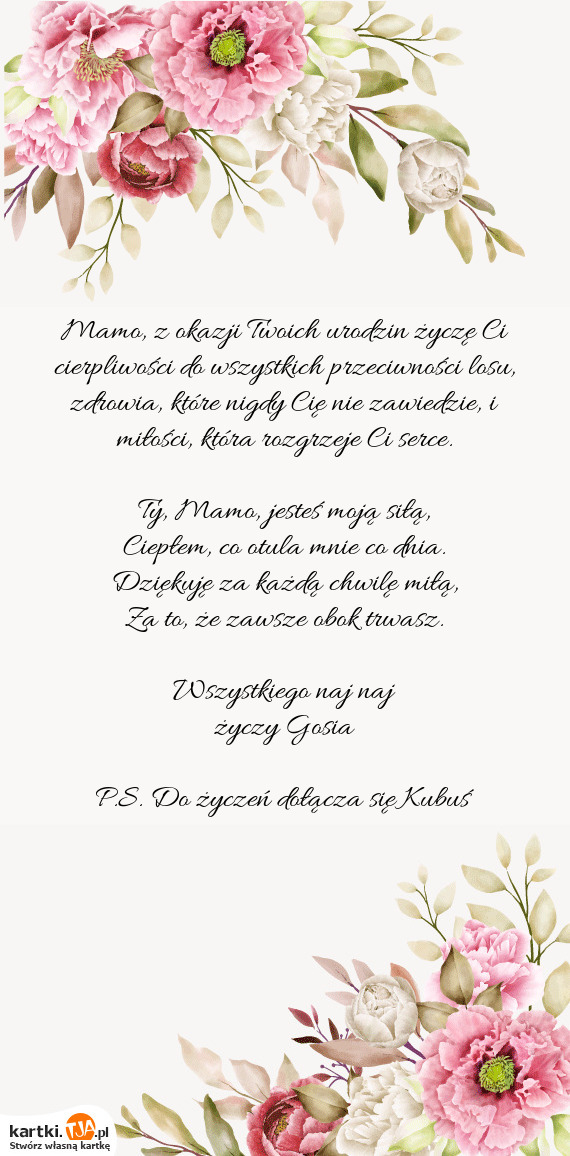 Mamo, z okazji Twoich urodzin życzę Ci
cierpliwości do wszystkich przeciwności losu,
zdrowia, które nigdy Cię nie zawiedzie, i
miłości, która rozgrzeje Ci serce.
Ty, Mamo, jesteś moją siłą,
Ciepłem, co otula mnie co dnia.
Dziękuję za każdą chwilę miłą,
Za to, że zawsze obok trwasz.
Wszystkiego naj naj
życzy Gosia
P.S. Do życzeń dołącza się Kubuś
kartki.TJA.pl
Stwórz własną kartkę